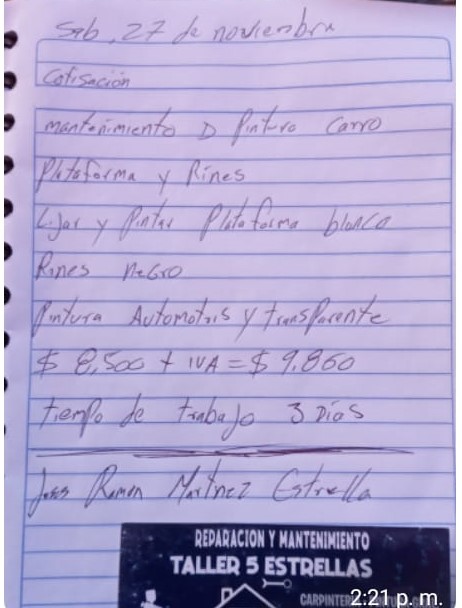 Sab, 27 de noviembre
Cotisación
mantenimiento D Pintura Carro
Plataforma y Rines
Lijar y Pintar Plataforma blanco
Rines neGro
Pintura Automotris y transParente
$ 8,500 + IVA = $ 9.860
tiempo de trabajo 3 Días
Ramon Martinez Estrella
REPARACION Y MANTENIMIENTO
TALLER 5 ESTRELLAS
2:21 p. m.